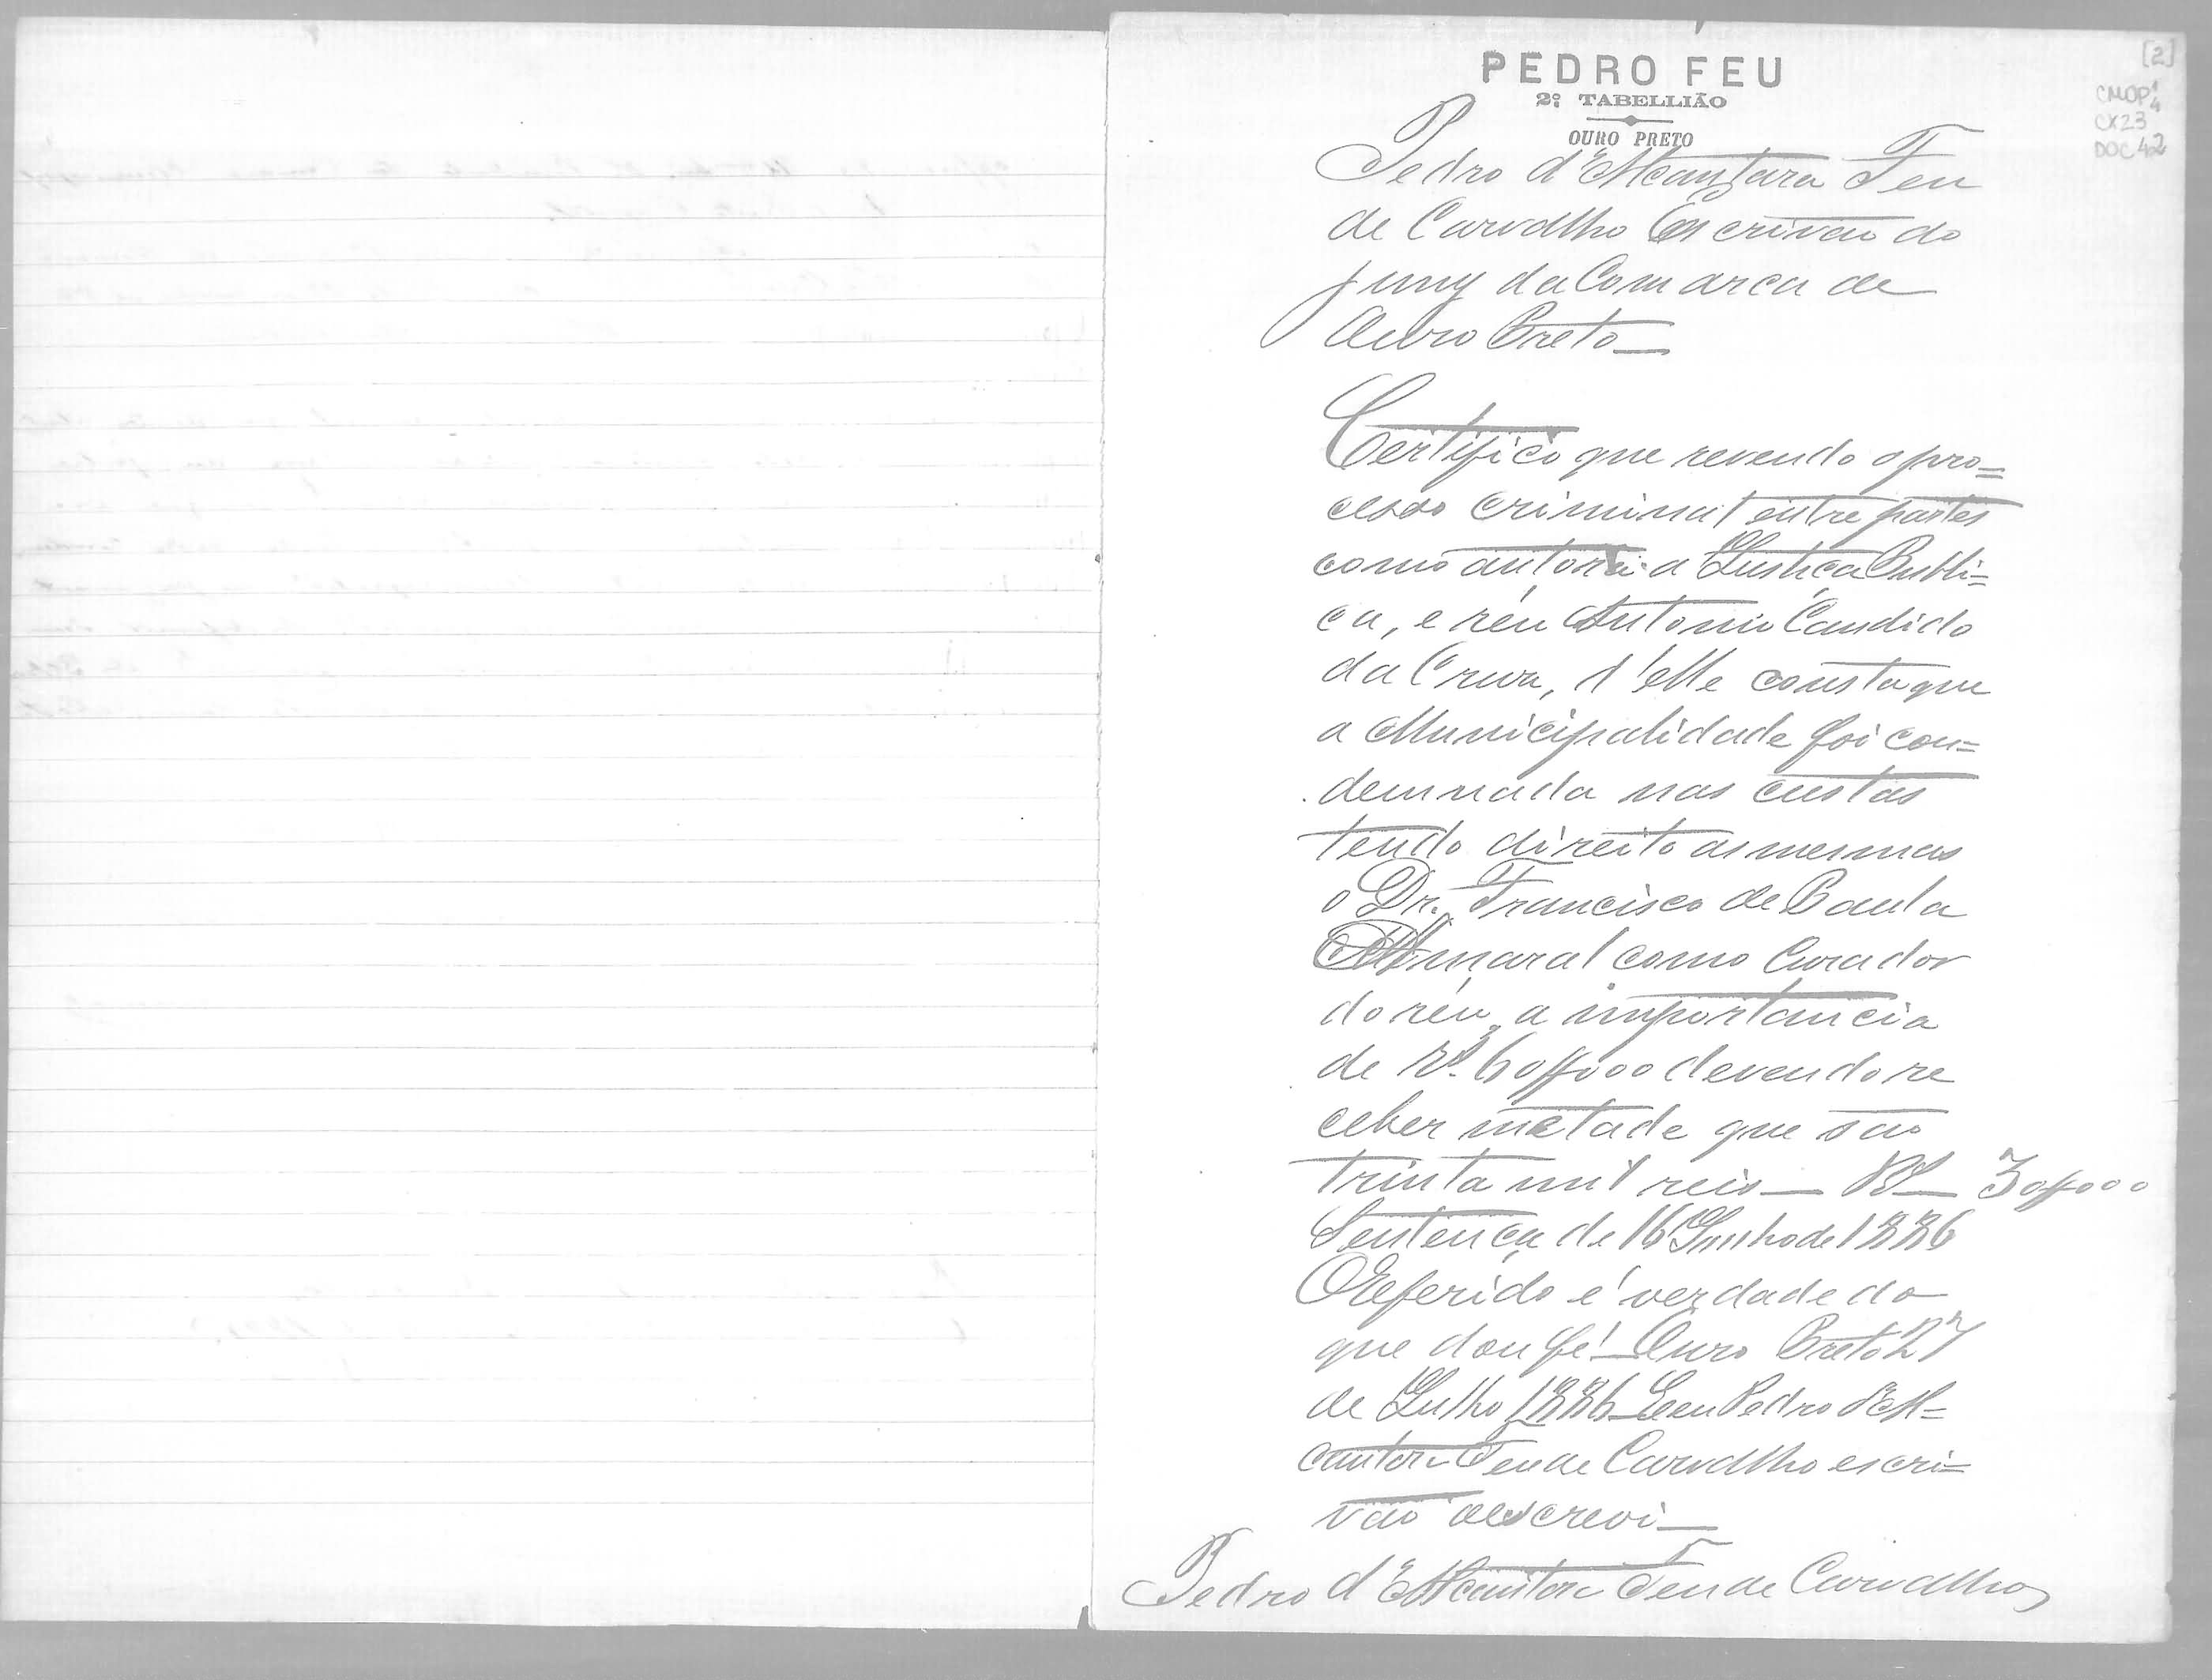 PEDRO FEU
2º TABELLIÃO
OURO PRETO
[2]
CMOP
CX23
DOC 42
Pedro d'Alcantara Feu
de Carvalho Escrivão do
jury da Comarca de
Ouro Preto —
Certifico que revendo o pro=
cesso criminal entre partes
como autora a Justiça Publi=
ca, e réu Antonio Candido
da Cruz, d'elle consta que
a Municipalidade foi con=
demnada nas custas
tendo direito as mesmas
o Dr. Francisco de Paula
Amaral como Curador
do réu, a importancia
de Rs. 60$000 devendo re
ceber metade que são
trinta mil reis — Rs — 30$000
Sentença de 16 Junho de 1886
O Referido é verdade do
que dou fé — Ouro Preto 27
de Julho 1886 — Eu Pedro d'Al=
cantara Feu de Carvalho escri=
vão o escrevi —
Pedro d'Alcantara Feu de Carvalho